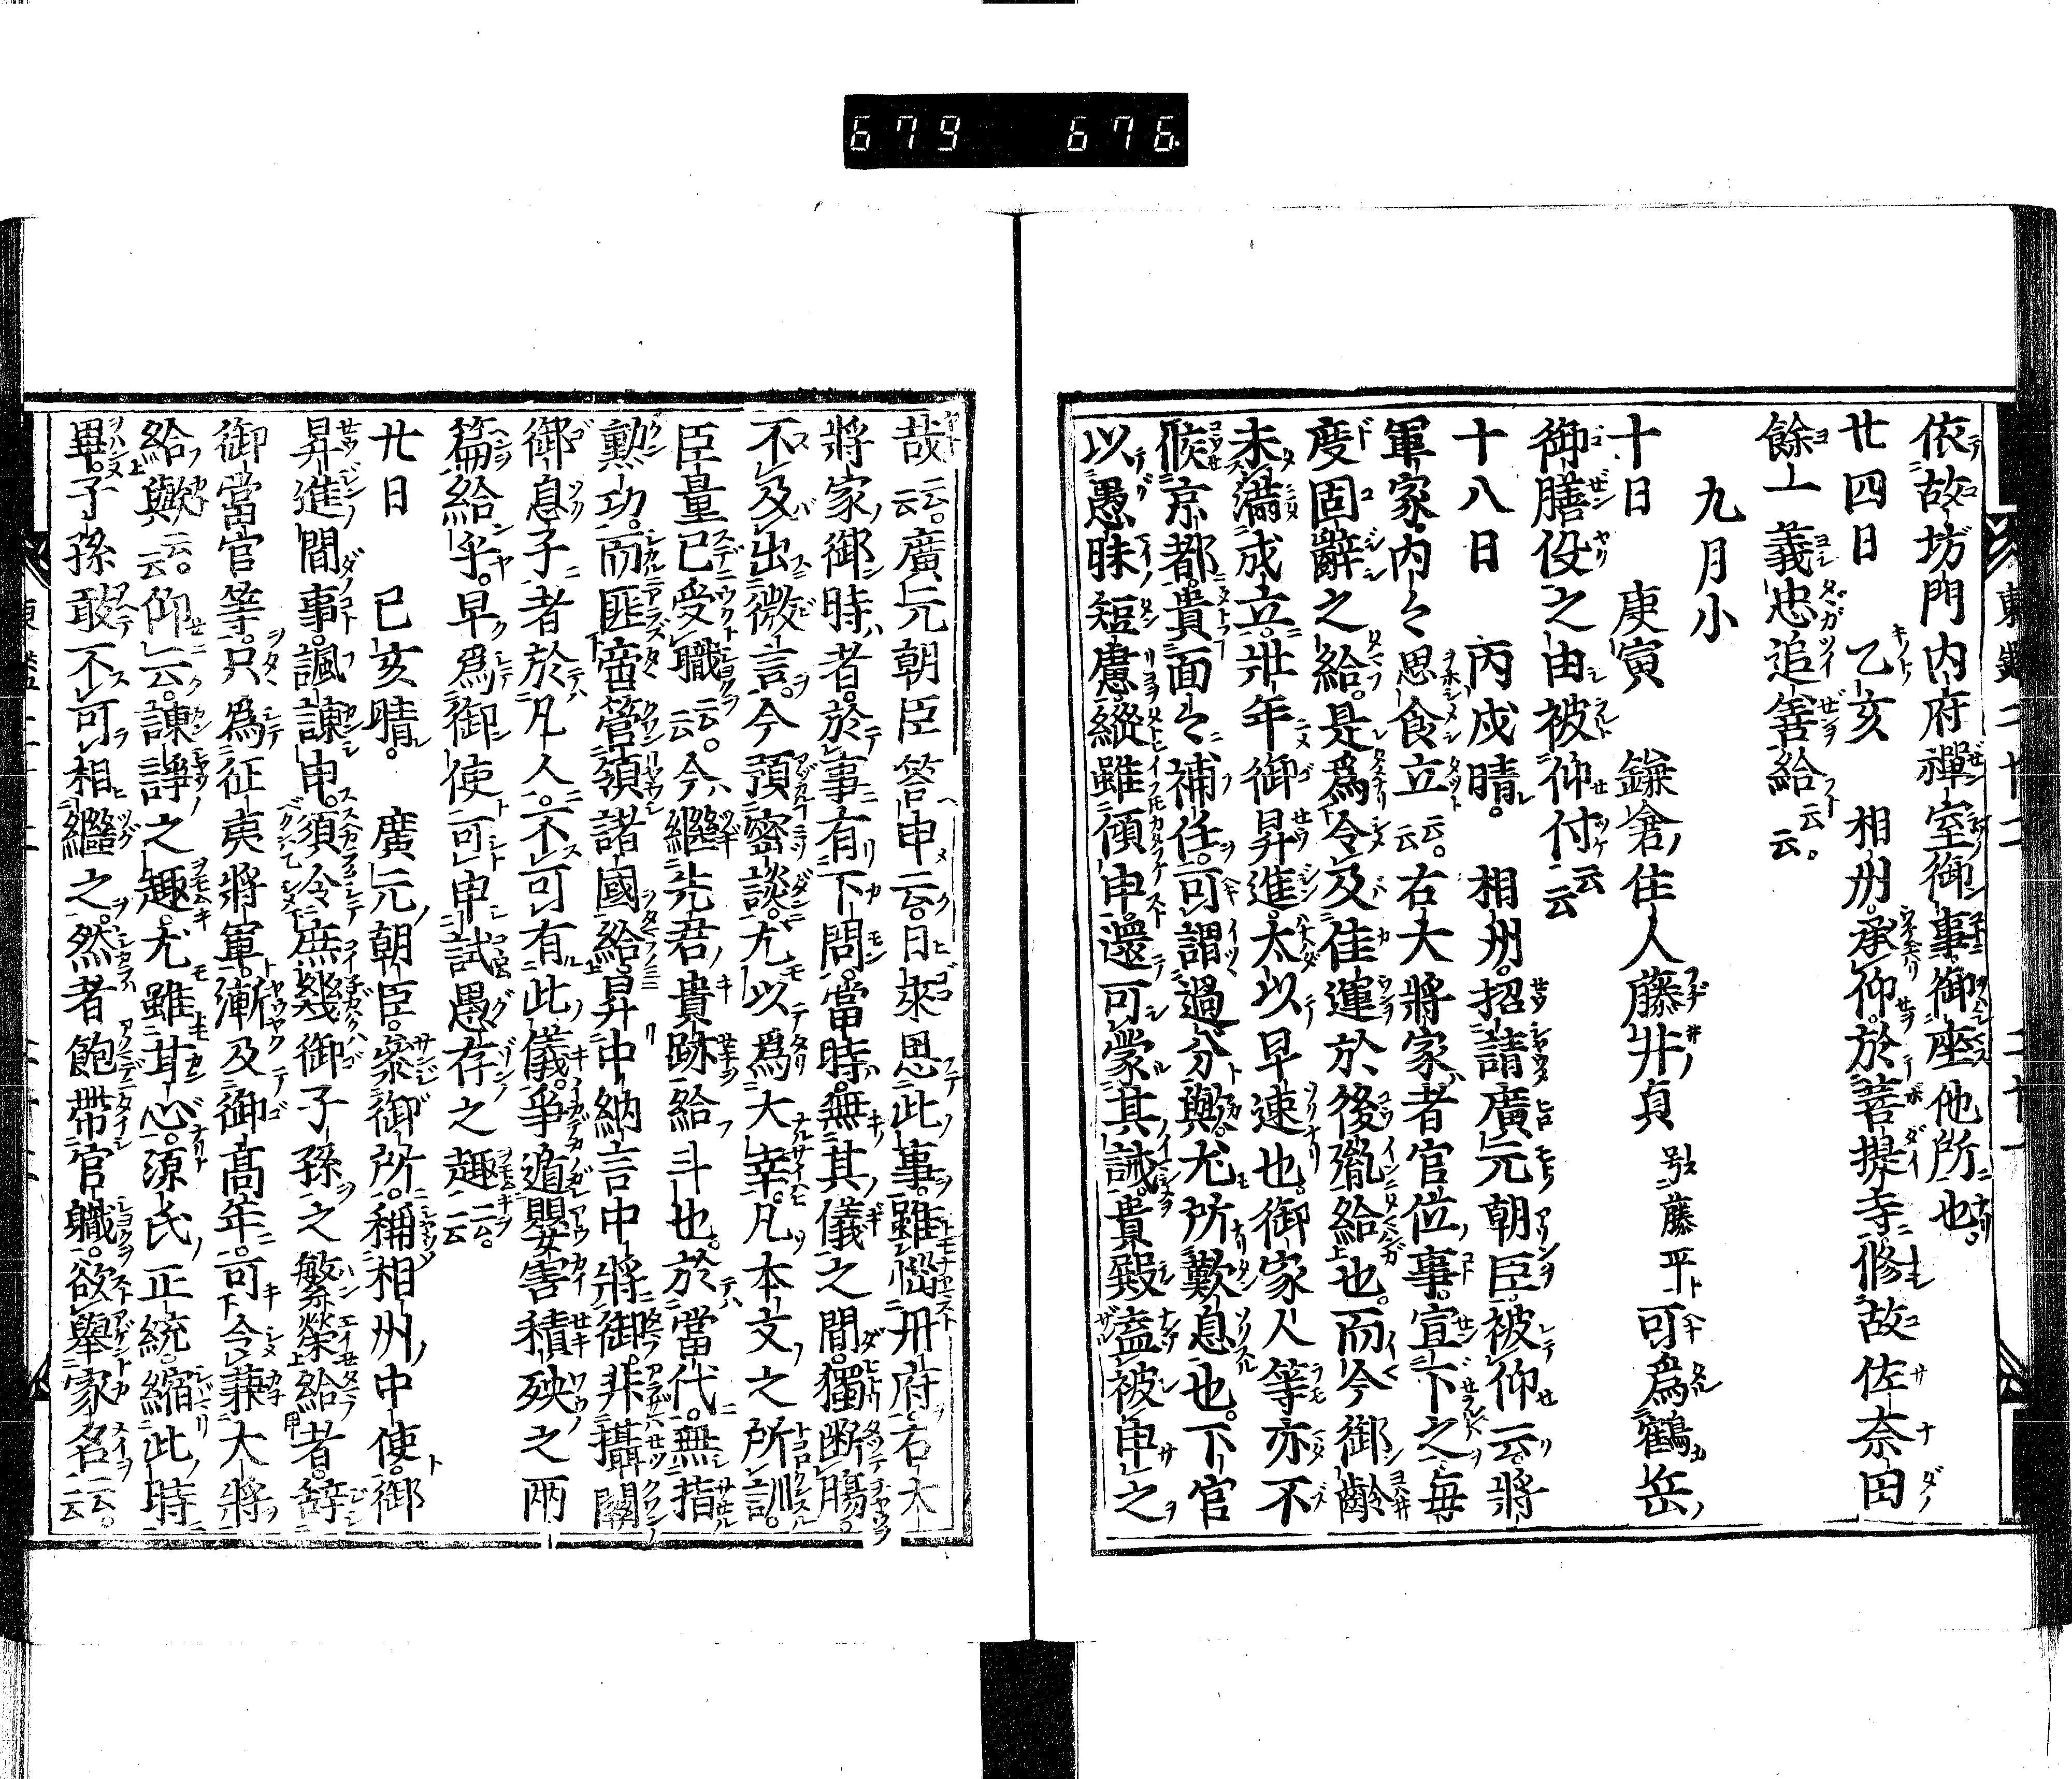 679 676
依故坊門内府禪室御事。御座他所也。
廿四日 乙亥 相州。承仰。於菩提寺。修故佐奈田
餘一義忠追善給云云。
九月小
十日 庚寅 鎌倉住人藤井貞 号藤平 可為鶴岳
御膳役之由被仰付云云
十八日 丙戌晴。 相州。招請廣元朝臣。被仰云。將
軍家。内々思食立云云。右大將家者官位事。宣下之毎
度固辭之給。是為令及佳運於後胤給也。而今御齡
未滿成立。壯年御昇進。太以早速也。御家人等亦不
候京都。貴面々補任。可謂過分歟。尤所歎息也。下官
以愚昧短慮。縱雖傾申。還可蒙其誡。貴殿盍被申之
哉云云。廣元朝臣答申云。日來思此事。雖惱丹府。右大
將家御時者。於事有下問。當時。無其儀之間。獨断腸。
不及出微言。今預密談。尤以為大幸。凡本文之所訓。
臣量己受職云云。今繼先君貴跡給計也。於當代。無指
勲功。而匪啻管領諸國給。昇中納言中將御。非攝關
御息子者於凡人。不可有此儀。爭遁嬰害積殃之兩
篇給乎。早為御使可申試愚存之趣云云。
廿日 己亥晴。 廣元朝臣。參御所。稱相州中使。御
昇進間事。諷諌申。須令庶幾御子孫之繁榮給者。辭
御當官等。只為征夷將軍。漸及御高年。可令兼大將
給歟云云。仰云。諌諍之趣。尤雖甘心。源氏正統。縮此時
畢。子孫敢不可相繼之。然者飽帶官職。欲舉家名云云。